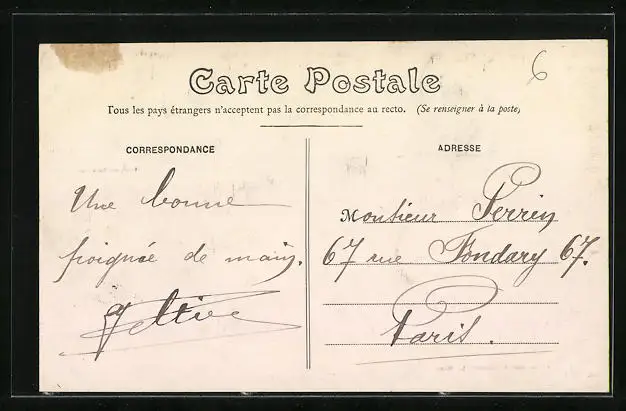 6
Carte Postale
Tous les pays étrangers n'acceptent pas la correspondance au recto. (Se renseigner à la poste)
CORRESPONDANCE
Une bonne
poignée de main.
ADRESSE
Monsieur Perrin
67 rue Fondary 67.
Paris.